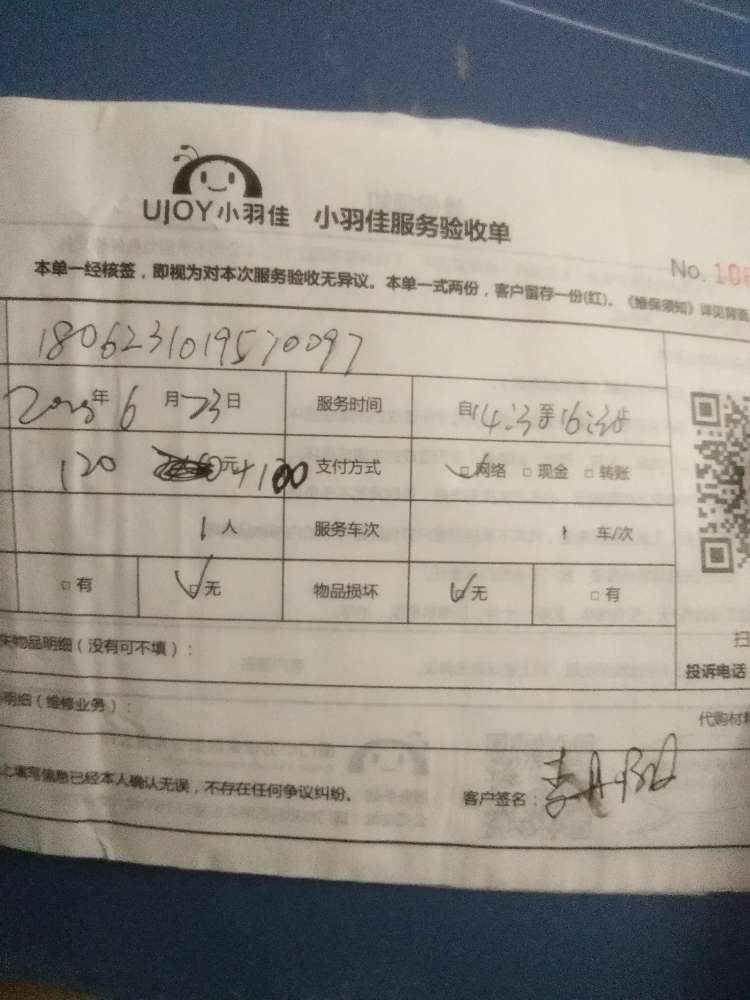 UJOY小羽佳 小羽佳服务验收单
No. 108
本单一经核签，即视为对本次服务验收无异议。本单一式两份，客户留存一份(红)。《维保须知》详见背面
1806231019570097
2018年6月23日 服务时间 自14:3 至16:30止
120 元+100 支付方式 ✓□网络 □现金 □转账
1人 服务车次 1 车/次
□有 ✓□无 物品损坏 ✓□无 □有
失物品明细（没有可不填）： 扫
投诉电话
明细（维修业务）： 代购材料
上填写信息已经本人确认无误，不存在任何争议纠纷。 客户签名：